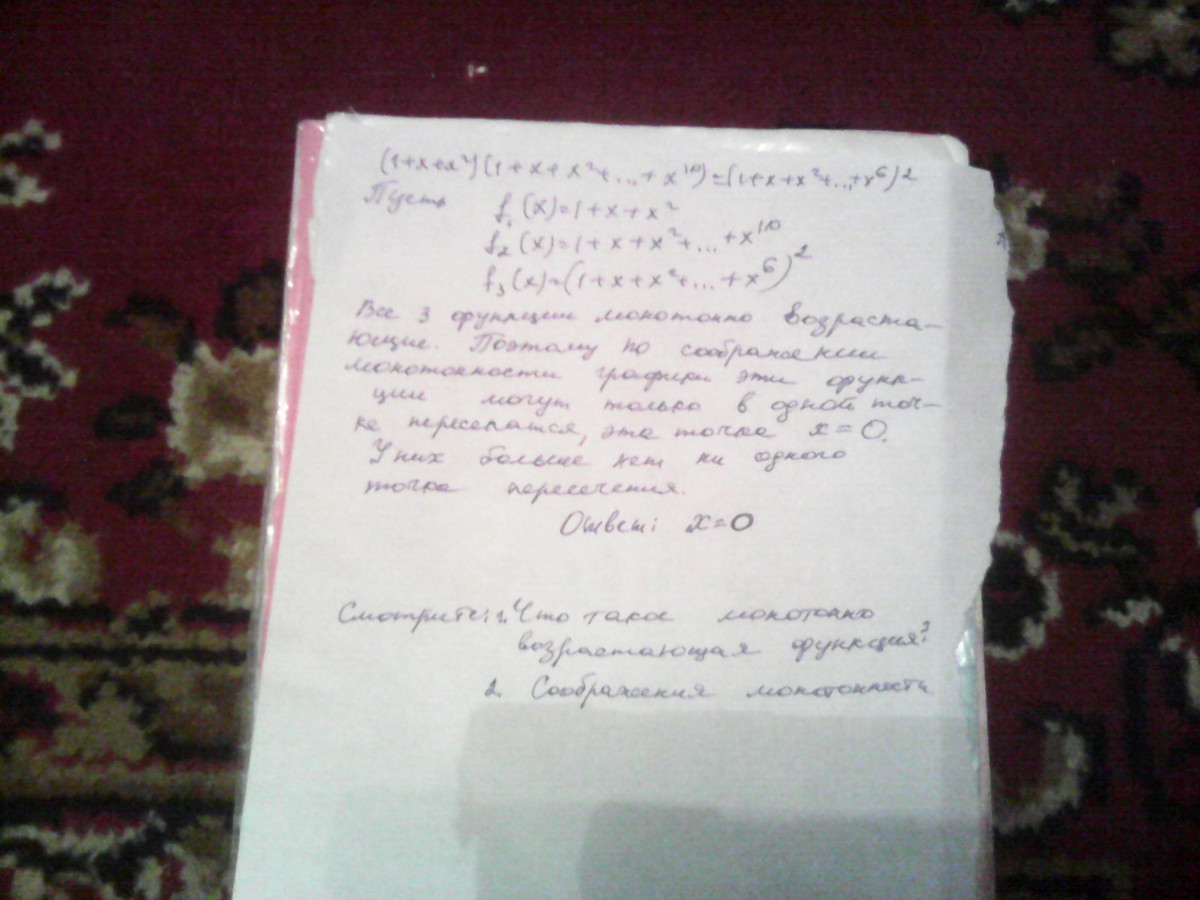 (1+x+x²)(1+x+x²+...+x¹⁰)=(1+x+x²+...+x⁶)²
Пусть f₁(x)=1+x+x²
f₂(x)=1+x+x²+...+x¹⁰
f₃(x)=(1+x+x²+...+x⁶)²
Все 3 функции монотонно возраста-
ющие. Поэтому по соображении
монотонности графики эти функ-
ции могут только в одной точ-
ке пересекатся, эта точка x=0.
У них больше нет ни одного
точка пересечения.
Ответ: x=0
Смотрите: 1. Что такое монотонно
возрастающая функция?
2. Соображения монотонности